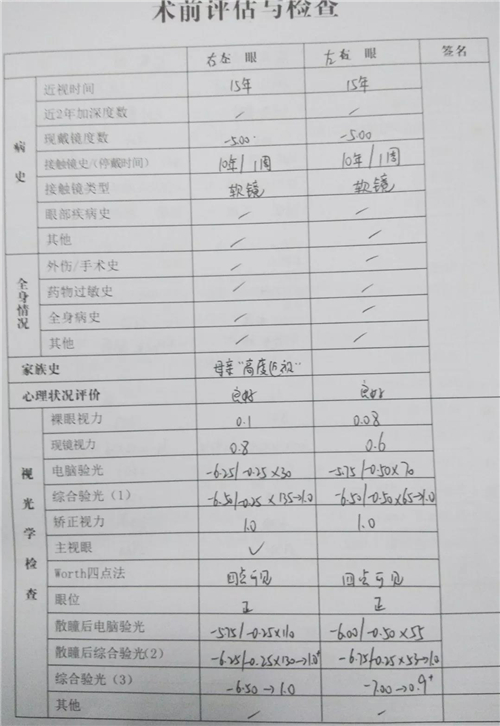 术前评估与检查
右 眼 左 眼 签名
病史
近视时间 15年 15年
近2年加深度数 / /
现戴镜度数 -5.00 -5.00
接触镜史/(停戴时间) 10年/1周 10年/1周
接触镜类型 软镜 软镜
眼部疾病史 / /
其他 / /
全身情况
外伤/手术史 / /
药物过敏史 / /
全身病史 / /
其他 / /
家族史 母亲"高度近视"
心理状况评价 良好 良好
视光学检查
裸眼视力 0.1 0.08
现镜视力 0.8 0.6
电脑验光 -6.25/-0.25×30 -5.75/-0.50×70
综合验光（1） -6.50/-0.25×135→1.0 -6.50/-0.50×65→1.0
矫正视力 1.0 1.0
主视眼 ✓
Worth四点法 四点可见 四点可见
眼位 正 正
散瞳后电脑验光 -5.75/-0.25×110 -6.00/-0.50×55
散瞳后综合验光(2) -6.25/-0.25×130→1.0⁺ -6.75/-0.25×55→1.0
综合验光（3） -6.50→1.0 -7.00→0.9⁺
其他 / /